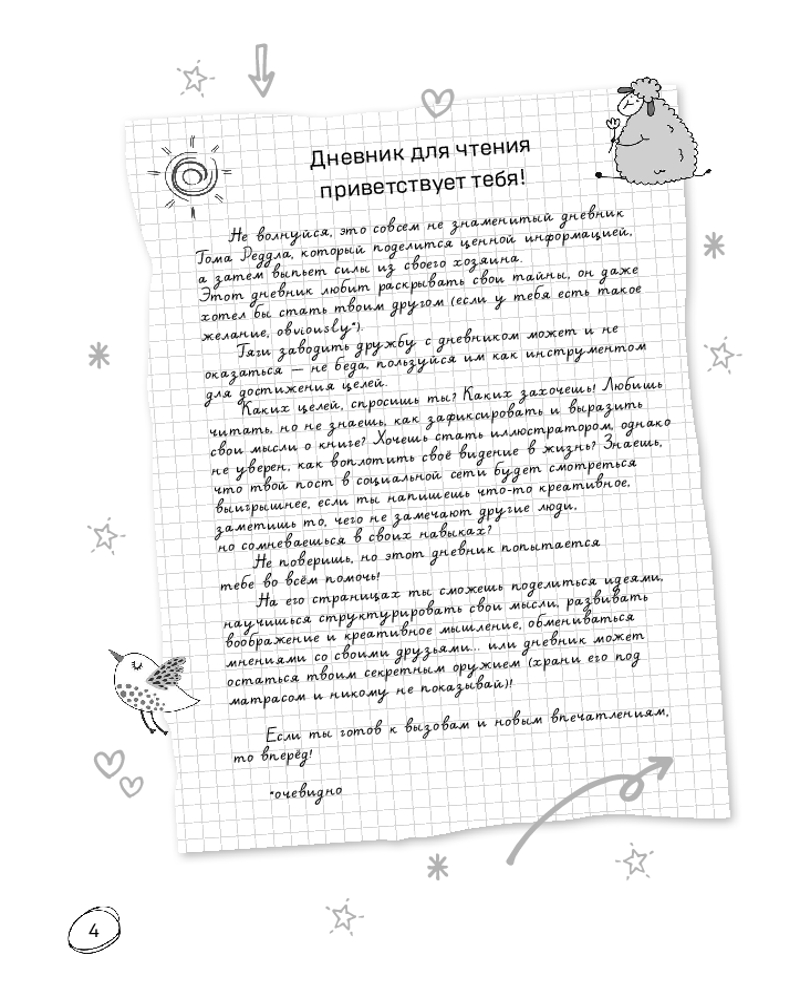 Дневник для чтения
приветствует тебя!
Не волнуйся, это совсем не знаменитый дневник
Тома Реддла, который поделится ценной информацией,
а затем выпьет силы из своего хозяина.
Этот дневник любит раскрывать свои тайны, он даже
хотел бы стать твоим другом (если у тебя есть такое
желание, obviously*).
Тяги заводить дружбу с дневником может и не
оказаться — не беда, пользуйся им как инструментом
для достижения целей.
Каких целей, спросишь ты? Каких захочешь! Любишь
читать, но не знаешь, как зафиксировать и выразить
свои мысли о книге? Хочешь стать иллюстратором, однако
не уверен, как воплотить своё видение в жизнь? Знаешь,
что твой пост в социальной сети будет смотреться
выигрышнее, если ты напишешь что-то креативное,
заметишь то, чего не замечают другие люди,
но сомневаешься в своих навыках?
Не поверишь, но этот дневник попытается
тебе во всём помочь!
На его страницах ты сможешь поделиться идеями,
научишься структурировать свои мысли, развивать
воображение и креативное мышление, обмениваться
мнениями со своими друзьями... или дневник может
остаться твоим секретным оружием (храни его под
матрасом и никому не показывай)!
Если ты готов к вызовам и новым впечатлениям,
то вперёд!
*очевидно
4